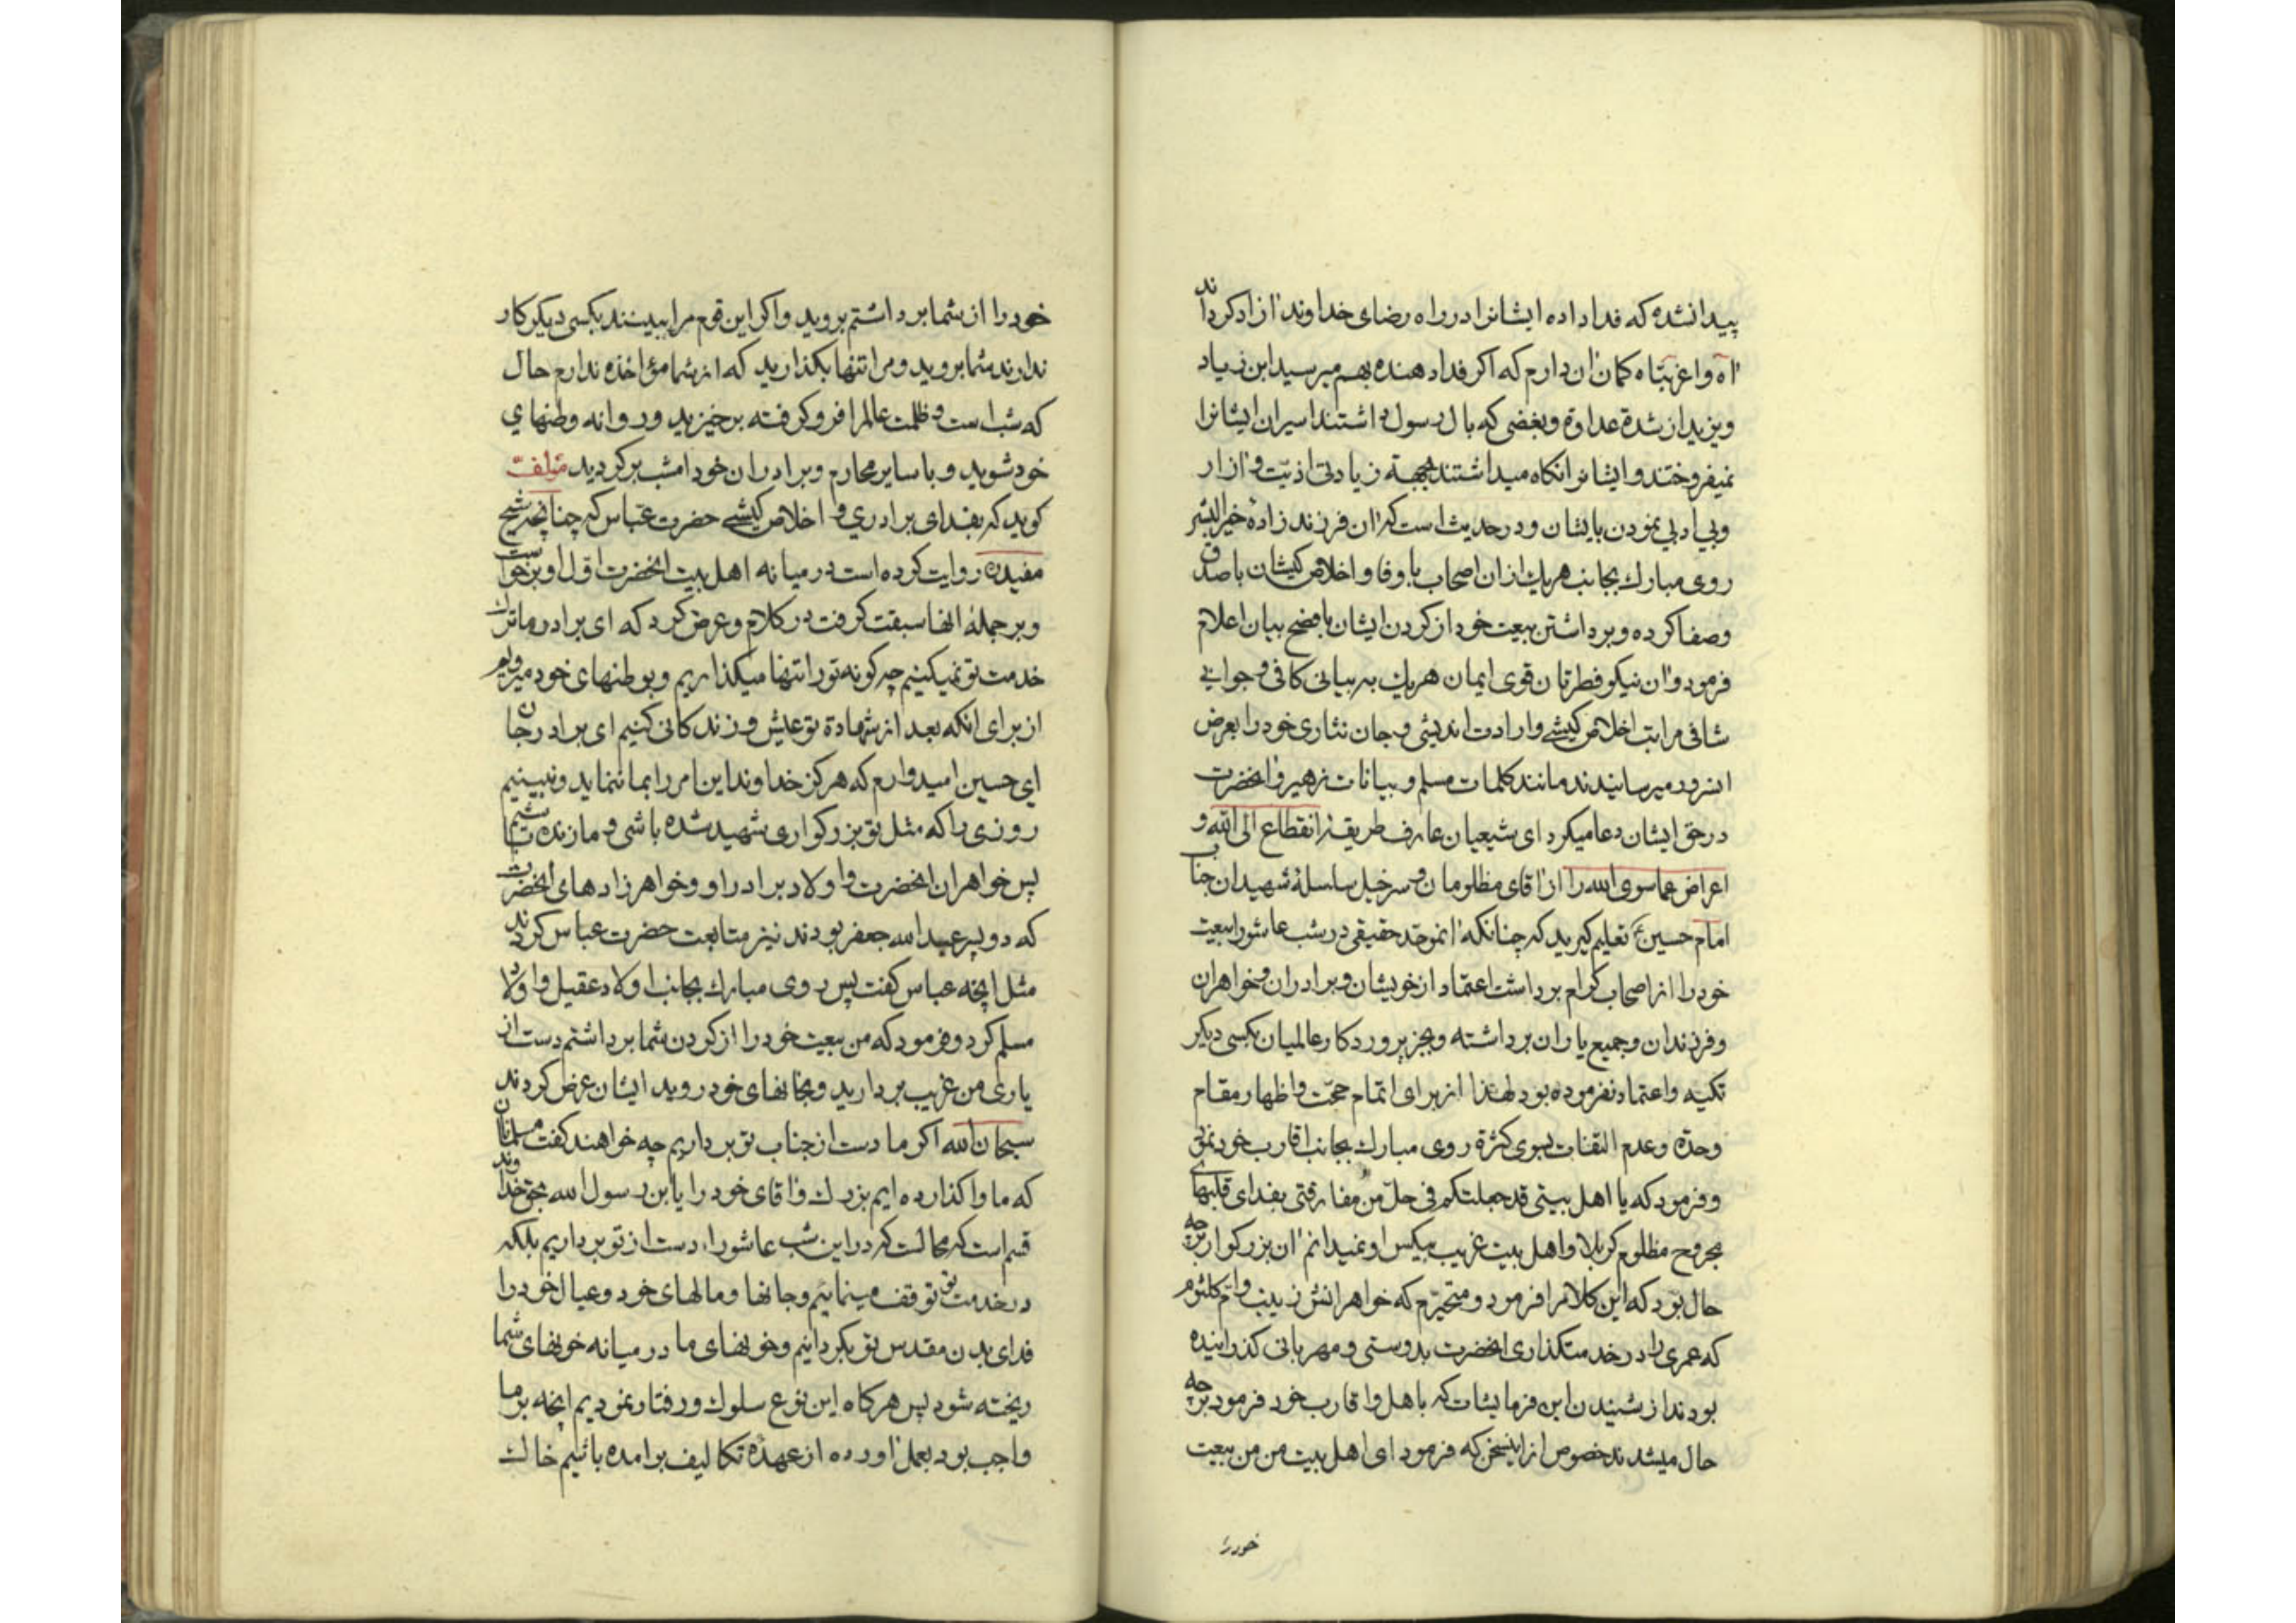 پیدا نشده که فدا داده ایشانرا در راه رضای خداوند آزاد کرداند
آه واغربتاه کمان آن دارم که اکر فدا دهنده بهم میرسید ابن زیاد
و یزید از شدة عداوة و بغضی که بال رسول داشتند اسیران ایشانرا
نمیفروختند و ایشانرا نکاه میداشتند بجهة زیادتی اذیّت و آزار
و بی ادبی نمودن بایشان و در حدیث است که آن فرزند زادهٔ خیر البشر
روی مبارك بجانب هریك از ان اصحاب با وفا و اخلاص کیشان با صدق
و صفا کرده و برداشتن بیعت خود از کردن ایشان بافصح بیان اعلام
فرمود و آن نیکو فطرتان قوی ایمان هریك به بیانی کافی و جوابی
شافی مراتب اخلاص کیشی و ارادت اندیشی و جان نثاری خود را بعرض
انسرور میرسانیدند مانند کلمات مسلم و بیانات زهیر و انحضرت
در حق ایشان دعا میکرد ای شیعیان عارف طریقهٔ انقطاع الی الله و
اعراض عماسوی الله را از آقای مظلومان و سرخیل سلسلهٔ شهیدان جناب
امام حسین ع تعلیم کیرید که چنانکه آنموحّد حقیقی در شب عاشورا بیعت
خود را از اصحاب کرام برداشت اعتماد از خویشان و برادران و خواهران
و فرزندان و جمیع یاران برداشته و بجز پروردکار عالمیان بکسی دیکر
تکیه و اعتماد نفرموده بود لهذا از برای اتمام حجّت و اظهار مقام
وحدة و عدم التفات بسوی کثرة روی مبارك بجانب اقارب خود نموده
و فرمود که یا اهل بیتی قد جعلتکم فی حلّ من مفارقتی بفدای قلبهای
مجروح مظلوم کربلا و اهل بیت غریب بیکس او نمیدانم آن بزرکوار بر چه
حال بود که این کلام را فرمود و متحیّرم که خواهرانش زینب و امّ کلثوم
که عمری را در خدمتکذاری انحضرت بدوستی و مهربانی کذرانیده
بودند از شنیدن این فرمایشات که باهل و اقارب خود فرمود بر چه
حال میشدند خصوص از اینسخن که فرمود ای اهل بیت من من بیعت
خود را
خود را از شما برداشتم بروید و اکر این قوم مرا ببینند بکسی دیکر کار
ندارند شما بروید و مرا تنها بکذارید که از شما مؤاخذه ندارم حال
که شب است و ظلمت عالم را فرو کرفته برخیزید و روانه وطنهای
خود شوید و با سایر محارم و برادران خود امشب برکردید مؤلف
کوید که بفدای برادری و اخلاص کیشی حضرت عباس که چنانچه شیخ
مفید ره روایت کرده است در میانه اهل بیت انحضرت اوّل او برخواست
و بر جملهٔ انها سبقت کرفت در کلام و عرض کرد که ای برادر ما ترك
خدمت تو نمیکنیم چه کونه تو را تنها میکذاریم و بوطنهای خود میرویم
از برای انکه بعد از شهادة تو عیش و زندکانی کنیم ای برادر جان
ای حسین امیدوارم که هرکز خداوند این امر را بما ننماید و نبینیم
روزی را که مثل تو بزرکواری شهید شده باشی و ما زنده باشیم
پس خواهران انحضرت و اولاد برادر او و خواهر زادهای انحضرت
که دو پسر عبد الله جعفر بودند نیز متابعت حضرت عباس کردند
مثل انچه عباس کفت پس روی مبارك بجانب اولاد عقیل و اولاد
مسلم کرد و فرمود که من بیعت خود را از کردن شما برداشتم دست از
یاری من غریب بردارید و بخانهای خود روید ایشان عرض کردند
سبحان الله اکر ما دست از جناب تو برداریم چه خواهند کفت مسلمانان
که ما واکذارده ایم بزرك و آقای خود را یا بن رسول الله بحق خداوند
قسم است که محالست که در این شب عاشورا دست از تو برداریم بلکه
در خدمت تو توقف مینمائیم و جانها و مالهای خود و عیال خود را
فدای بدن مقدس تو بکردانیم و خونهای ما در میانه خونهای شما
ریخته شود پس هرکاه این نوع سلوك و رفتار نمودیم انچه بر ما
واجب بود بعمل آورده از عهدهٔ تکالیف برامده باشیم خاك